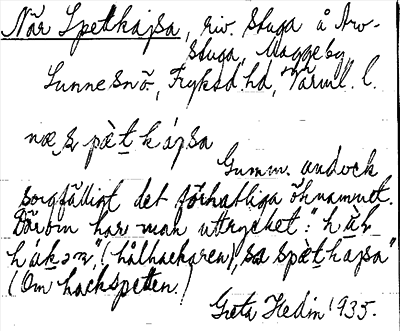 När Spetkajsa, riv. stuga å Arv-
stuga, Maggeby,
Sunne snö., Fryksd. hd, Värml. l.
næ, s pæ̀t k ájsa
Gumm. undvek
sorgfälligt det förhatliga öknamnet.
Därom har man uttrycket: "hǡl-
hákǝn", (hålhackaren), sa spæ̀tkajsa"
(Om hackspetten.)
Greta Hedin 1935.